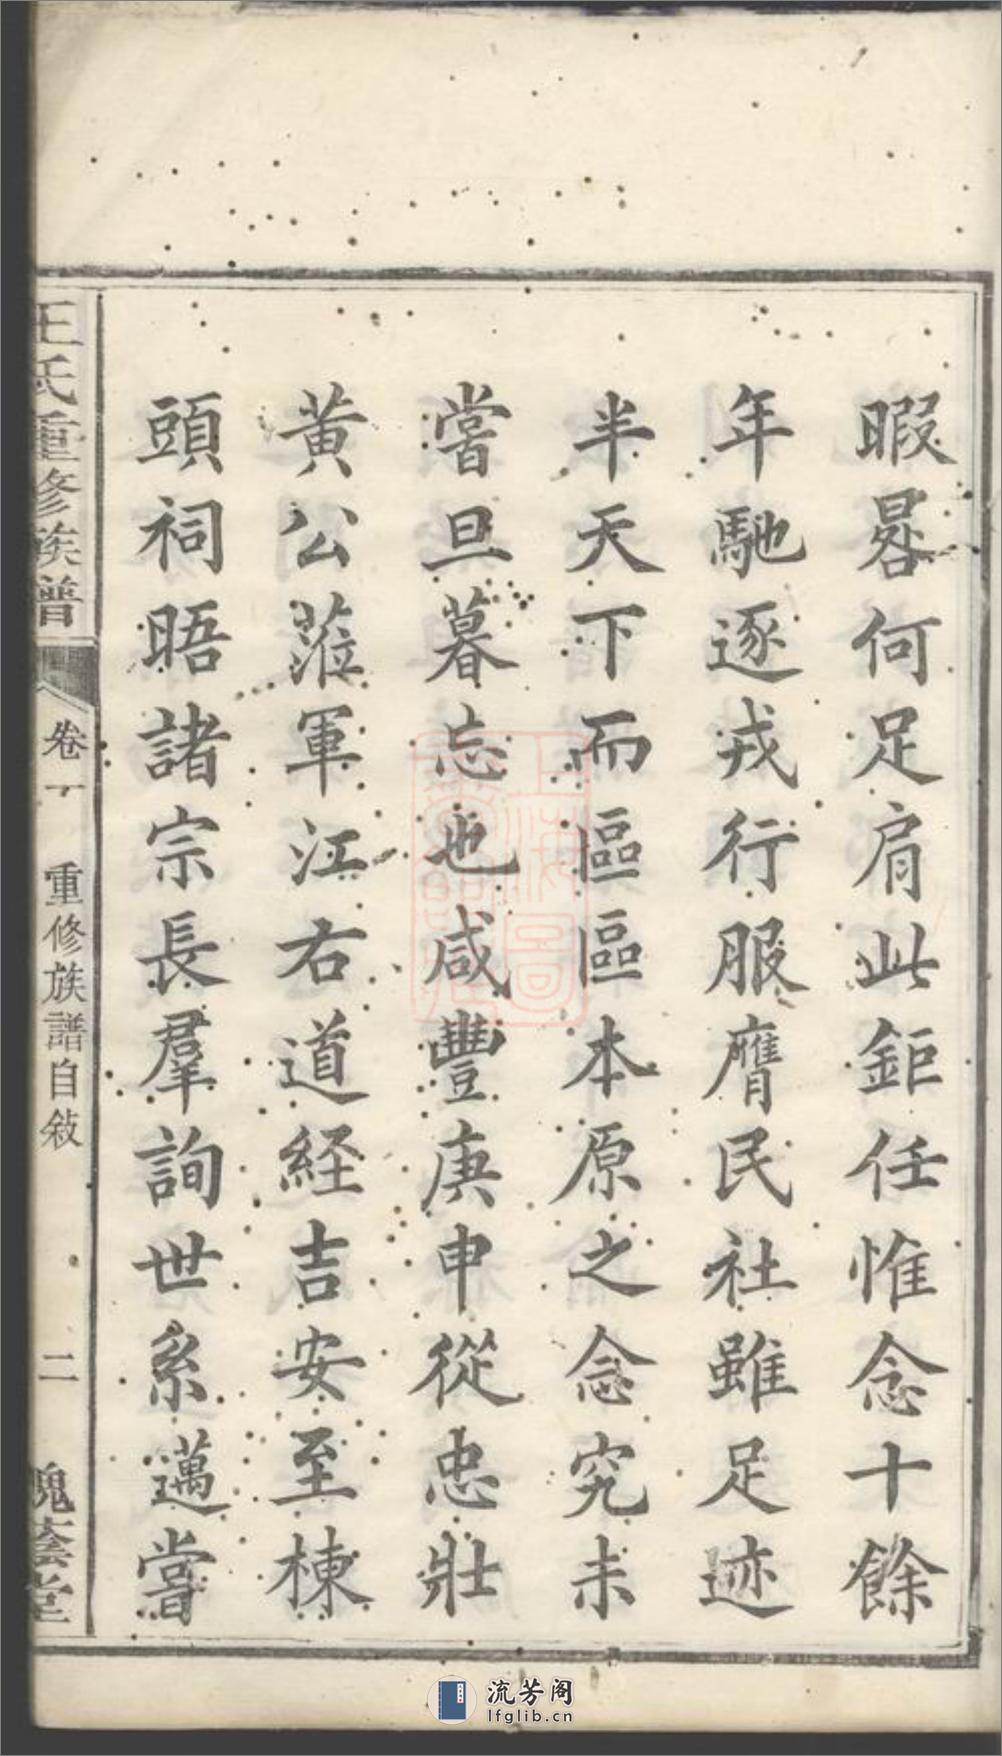 暇晷何足肩此鉅任惟念十餘
年馳逐戎行服膺民社雖足迹
半天下而區區本原之念究未
嘗旦暮忘也咸豐庚申從忠壯
黃公蒞軍江右道経吉安至棟
頭祠晤諸宗長羣詢世系遥嘗
王氏重修族譜
卷一
重修族譜自敍
二
槐蔭堂
流芳阁
lfglib.cn